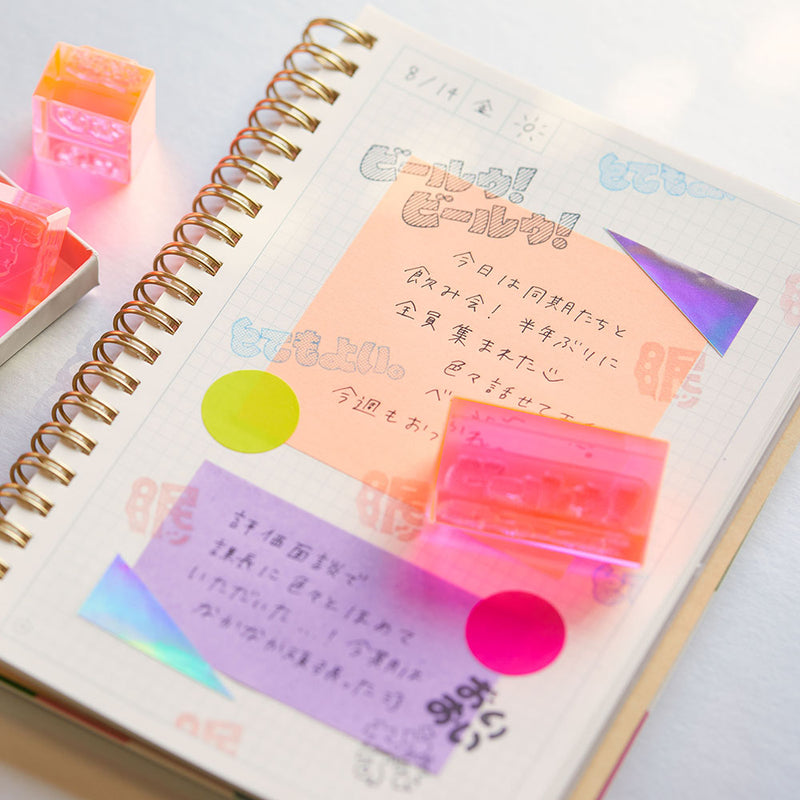 8/14 金
ビールか!
ビールか!
とてもよい。
今日は同期たちと
飲み会! 半年ぶりに
全員集まれた
色々話せて
今週もおつ
とてもよい。
眠
眠
眠
評価面談で
課長に色々とほめて
いただいた…! 今期は
なかなか頑張った
おい
おい